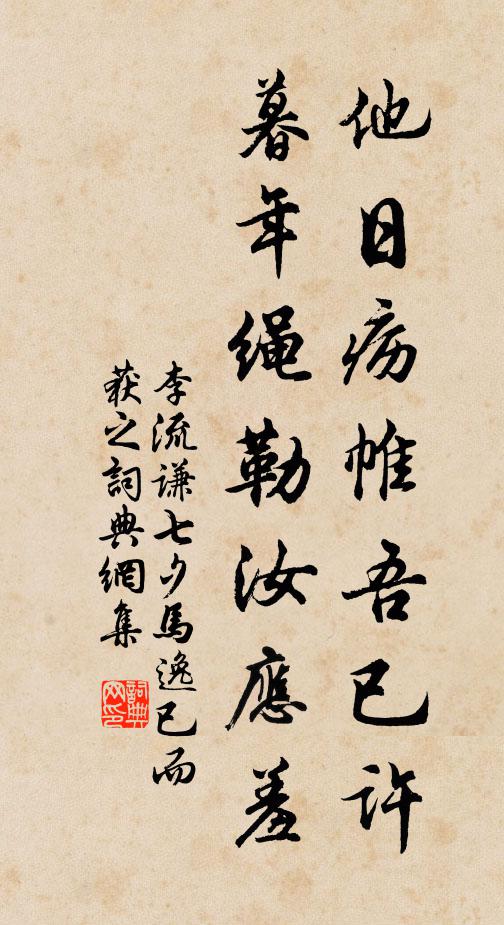 他日疡帷吾已許
暮年绳勒汝應羞
李流謙七夕馬逸已而
获之詞典網集
詞典
网印